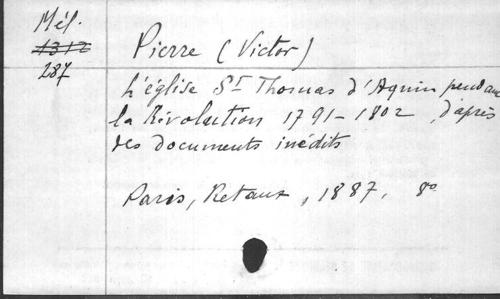 Mél.
1312
287
Pierre (Victor)
L'église St Thomas d'Aquin pendant
la Révolution 1791-1802, d'après
des documents inédits
Paris, Retaux, 1887, 8o